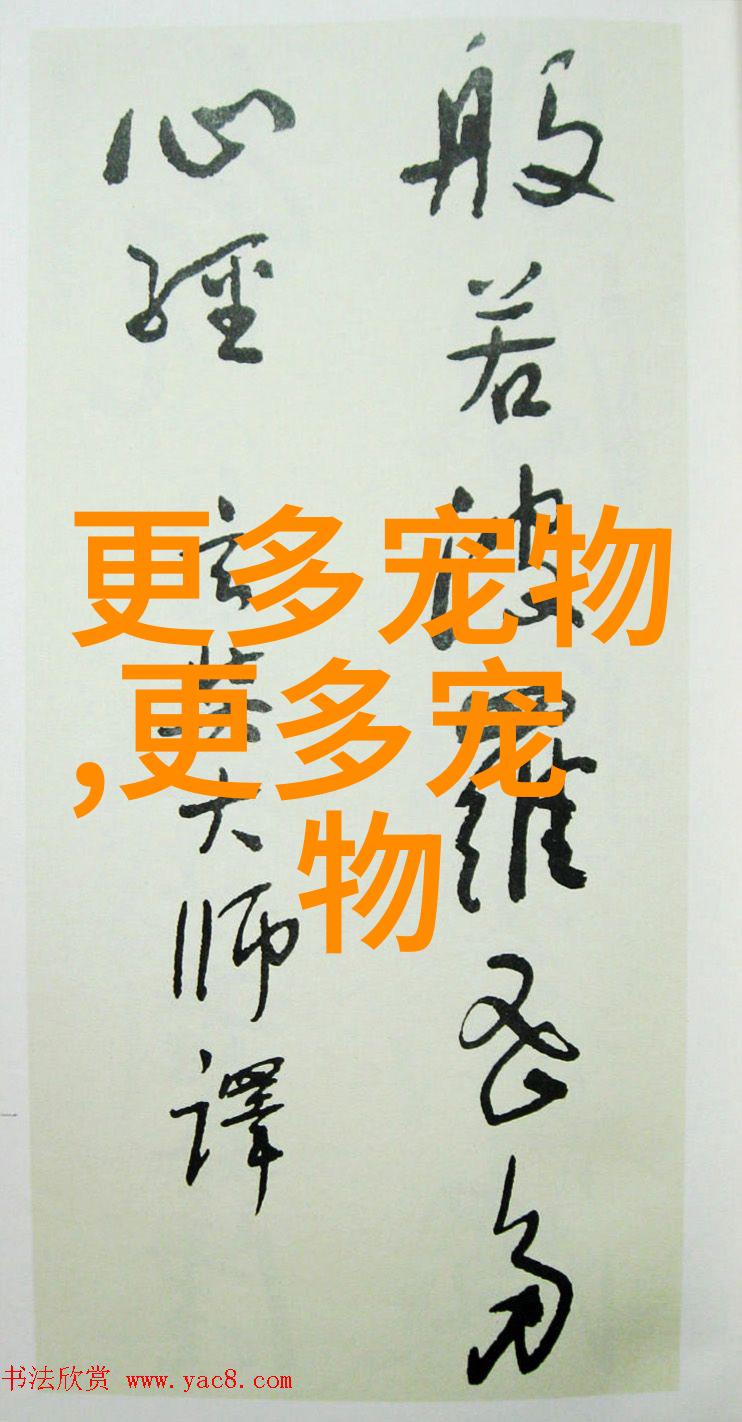 般若波羅蜜多
心經 玄奘大師譯
更多宠物
,更多宠
物
书法欣赏 www.yac8.com